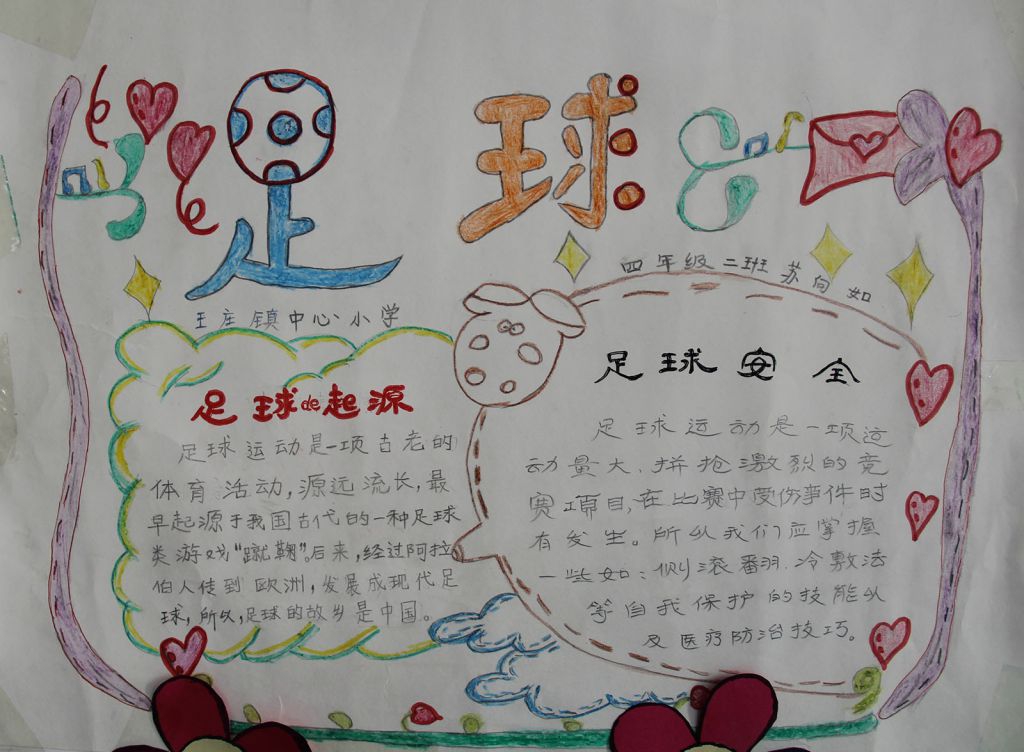 足球
四年级二班 苏向如
王庄镇中心小学
足球de起源
足球运动是一项古老的
体育活动，源远流长，最
早起源于我国古代的一种足球
类游戏“蹴鞠”。后来，经过阿拉
伯人传到欧洲，发展成现代足
球，所以，足球的故乡是中国。
足球安全
足球运动是一项运
动量大、拼抢激烈的竞
赛项目，在比赛中受伤事件时
有发生。所以我们应掌握
一些如：侧滚翻、冷敷法
等自我保护的技能以
及医疗防治技巧。